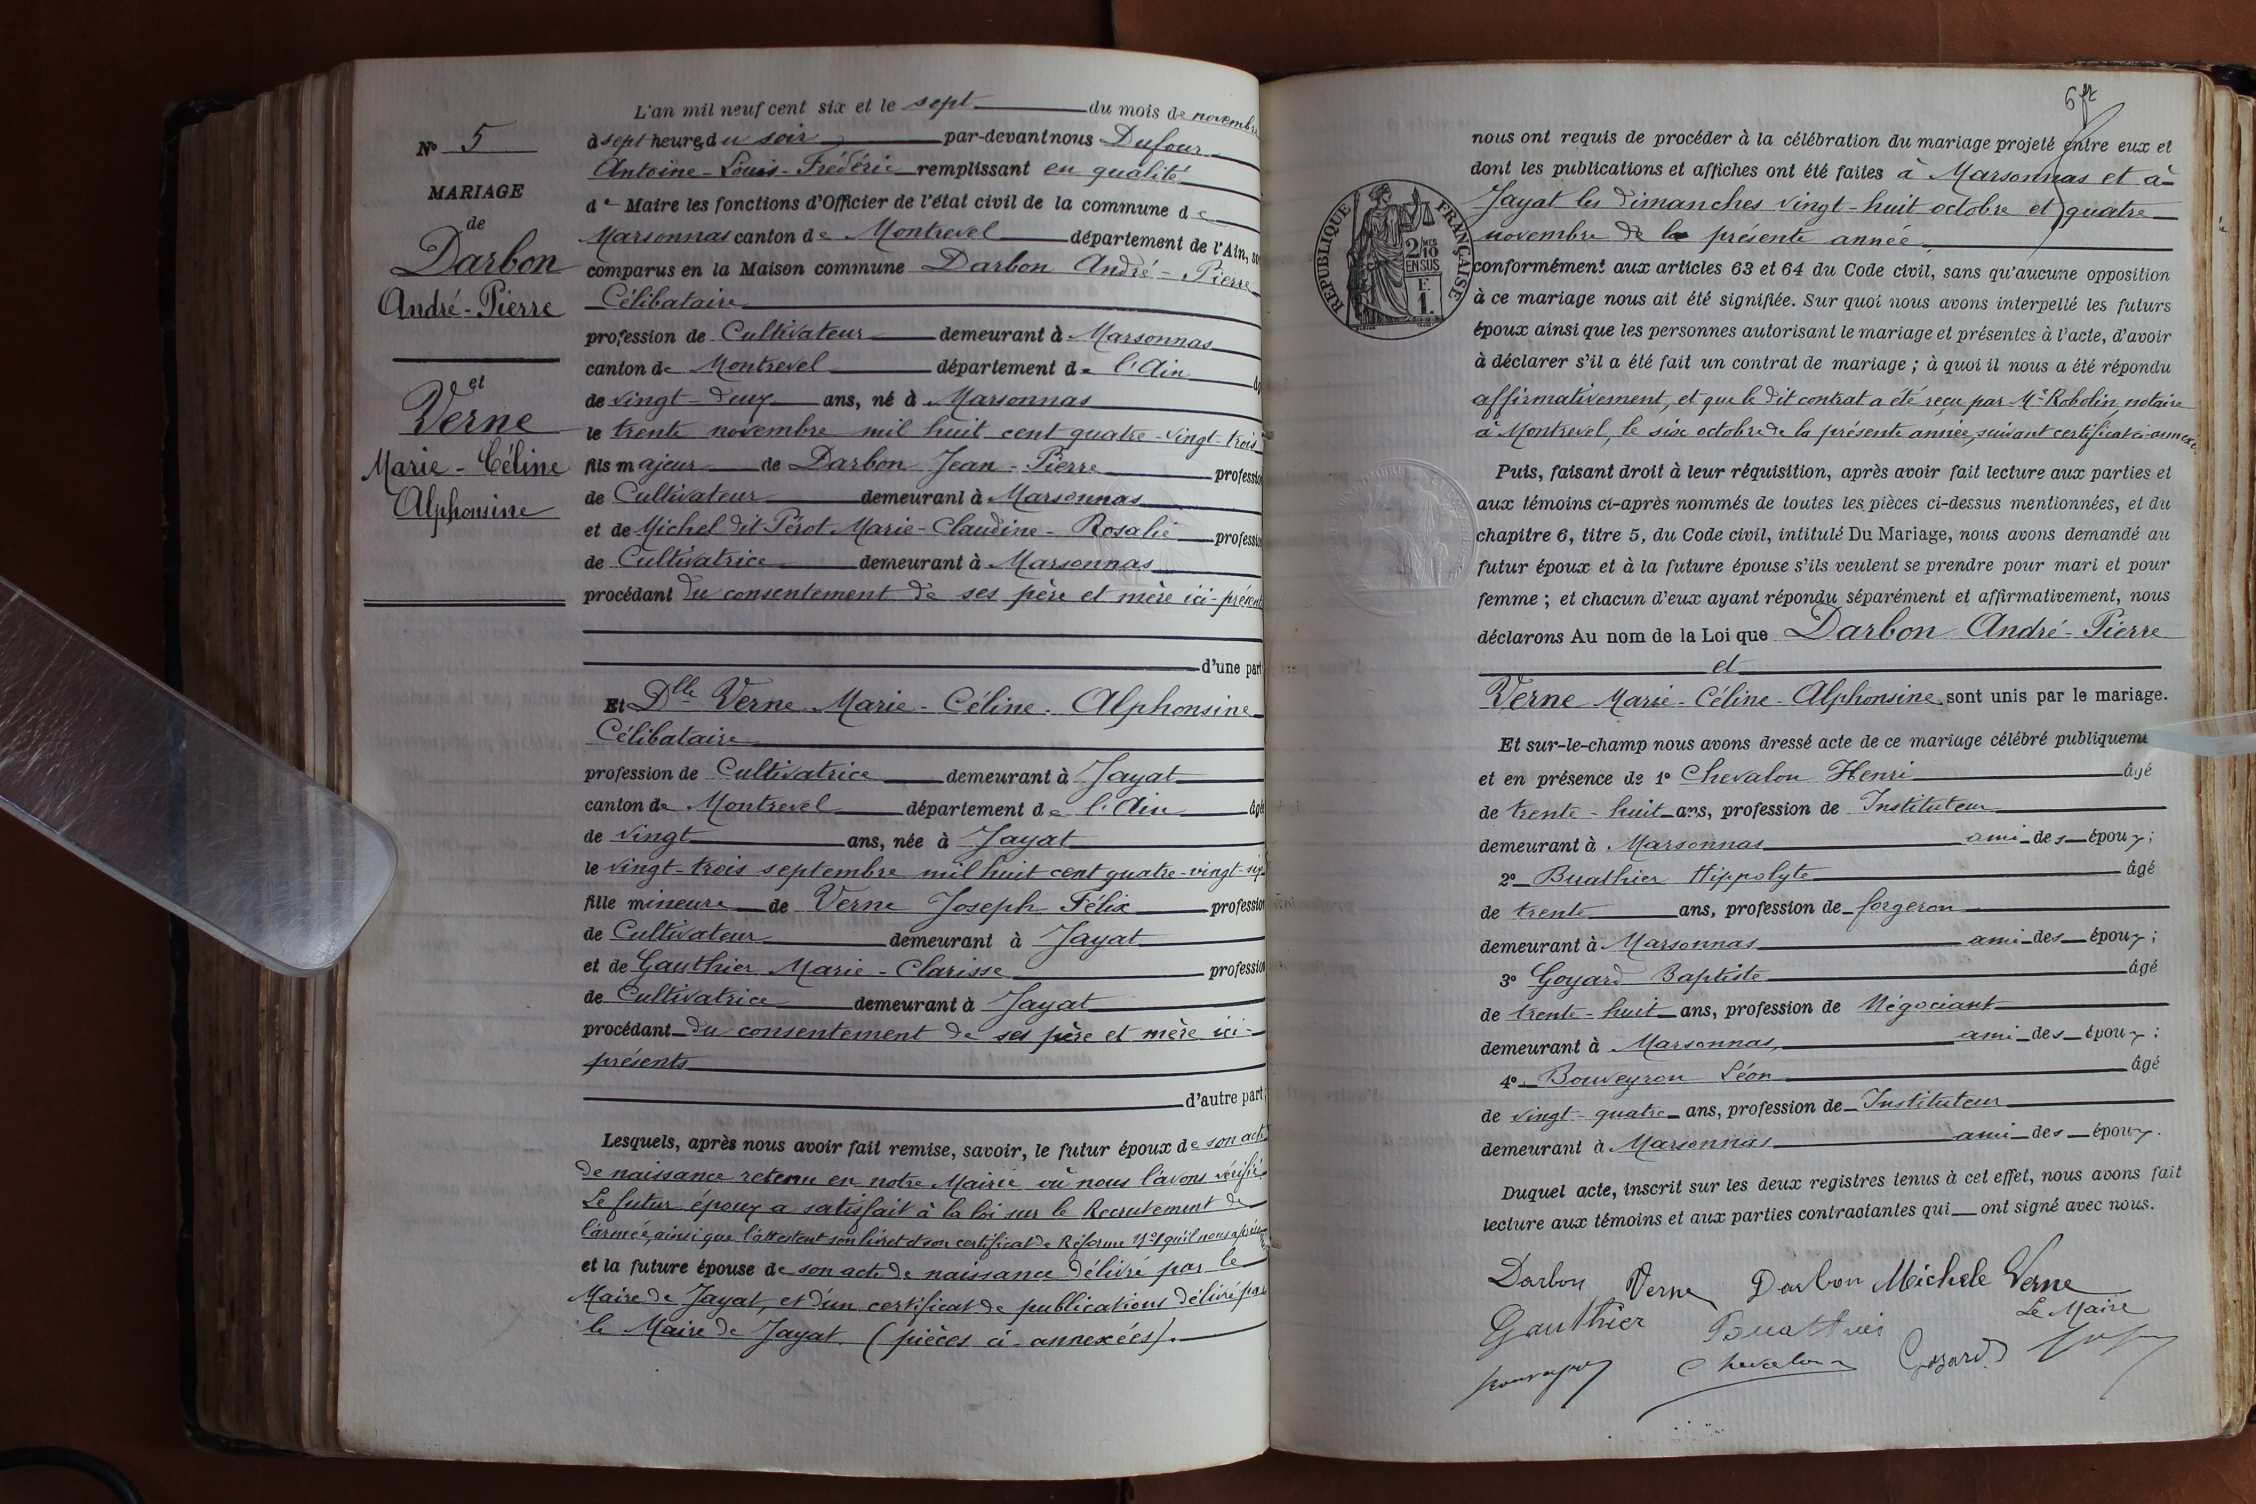 N° 5
MARIAGE
de
Darbon
André-Pierre
et
Verne
Marie-Céline
Alphonsine
L'an mil neuf cent six et le sept du mois de novembre
à sept heures du soir par-devant nous Dufour
Antoine-Louis-Frédéric remplissant en qualité
de Maire les fonctions d'Officier de l'état civil de la commune de
Marsonnas canton de Montrevel département de l'Ain, so
comparus en la Maison commune Darbon André-Pierre
Célibataire
profession de Cultivateur demeurant à Marsonnas
canton de Montrevel département de l'Ain
de vingt-deux ans, né à Marsonnas
le trente novembre mil huit cent quatre-vingt-trois
fils majeur de Darbon Jean-Pierre profession
de Cultivateur demeurant à Marsonnas
et de Michel dit Pérot Marie-Claudine-Rosalie profession
de Cultivatrice demeurant à Marsonnas
procédant du consentement de ses père et mère ici-présents
d'une part
Et Dlle Verne Marie-Céline-Alphonsine
Célibataire
profession de Cultivatrice demeurant à Jayat
canton de Montrevel département de l'Ain âgé
de vingt ans, née à Jayat
le vingt-trois septembre mil huit cent quatre-vingt-six
fille mineure de Verne Joseph Félix profession
de Cultivateur demeurant à Jayat
et de Gauthier Marie-Clarisse profession
de Cultivatrice demeurant à Jayat
procédant du consentement de ses père et mère ici-
présents
d'autre part;
Lesquels, après nous avoir fait remise, savoir, le futur époux de son acte
de naissance retenu en notre Mairie où nous l'avons vérifié.
Le futur époux a satisfait à la loi sur le Recrutement de
l'armée, ainsi que l'attestent son livret et son certificat de Réforme N°1 qu'il nous a
et la future épouse de son acte de naissance délivré par le
Maire de Jayat, et d'un certificat de publications délivré par
le Maire de Jayat. (pièces ci-annexées).
6
nous ont requis de procéder à la célébration du mariage projeté entre eux et
dont les publications et affiches ont été faites à Marsonnas et à
Jayat les dimanches vingt-huit octobre et quatre
novembre de la présente année,
conformément aux articles 63 et 64 du Code civil, sans qu'aucune opposition
à ce mariage nous ait été signifiée. Sur quoi nous avons interpellé les futurs
époux ainsi que les personnes autorisant le mariage et présentes à l'acte, d'avoir
à déclarer s'il a été fait un contrat de mariage ; à quoi il nous a été répondu
affirmativement, et que le dit contrat a été reçu par Me Robolin, notaire
à Montrevel, le six octobre de la présente année, suivant certificat ci-annexé.
RÉPUBLIQUE FRANÇAISE
2/10
EN SUS
F.
1.
Puis, faisant droit à leur réquisition, après avoir fait lecture aux parties et
aux témoins ci-après nommés de toutes les pièces ci-dessus mentionnées, et du
chapitre 6, titre 5, du Code civil, intitulé Du Mariage, nous avons demandé au
futur époux et à la future épouse s'ils veulent se prendre pour mari et pour
femme ; et chacun d'eux ayant répondu séparément et affirmativement, nous
déclarons Au nom de la Loi que Darbon André-Pierre
et
Verne Marie-Céline-Alphonsine sont unis par le mariage.
Et sur-le-champ nous avons dressé acte de ce mariage célébré publiqueme
et en présence de 1° Chevalon Henri âgé
de trente-huit ans, profession de Instituteur
demeurant à Marsonnas ami des époux;
2° Buathier Hippolyte âgé
de trente ans, profession de forgeron
demeurant à Marsonnas ami des époux;
3° Goyard Baptiste âgé
de trente-huit ans, profession de Négociant
demeurant à Marsonnas, ami des époux;
4° Bouveyron Léon âgé
de vingt-quatre ans, profession de Instituteur
demeurant à Marsonnas ami des époux.
Duquel acte, inscrit sur les deux registres tenus à cet effet, nous avons fait
lecture aux témoins et aux parties contractantes qui ont signé avec nous.
Darbon Verne Darbon Michele Verne
Gauthier Buathier Le Maire
Chevalon Goyard